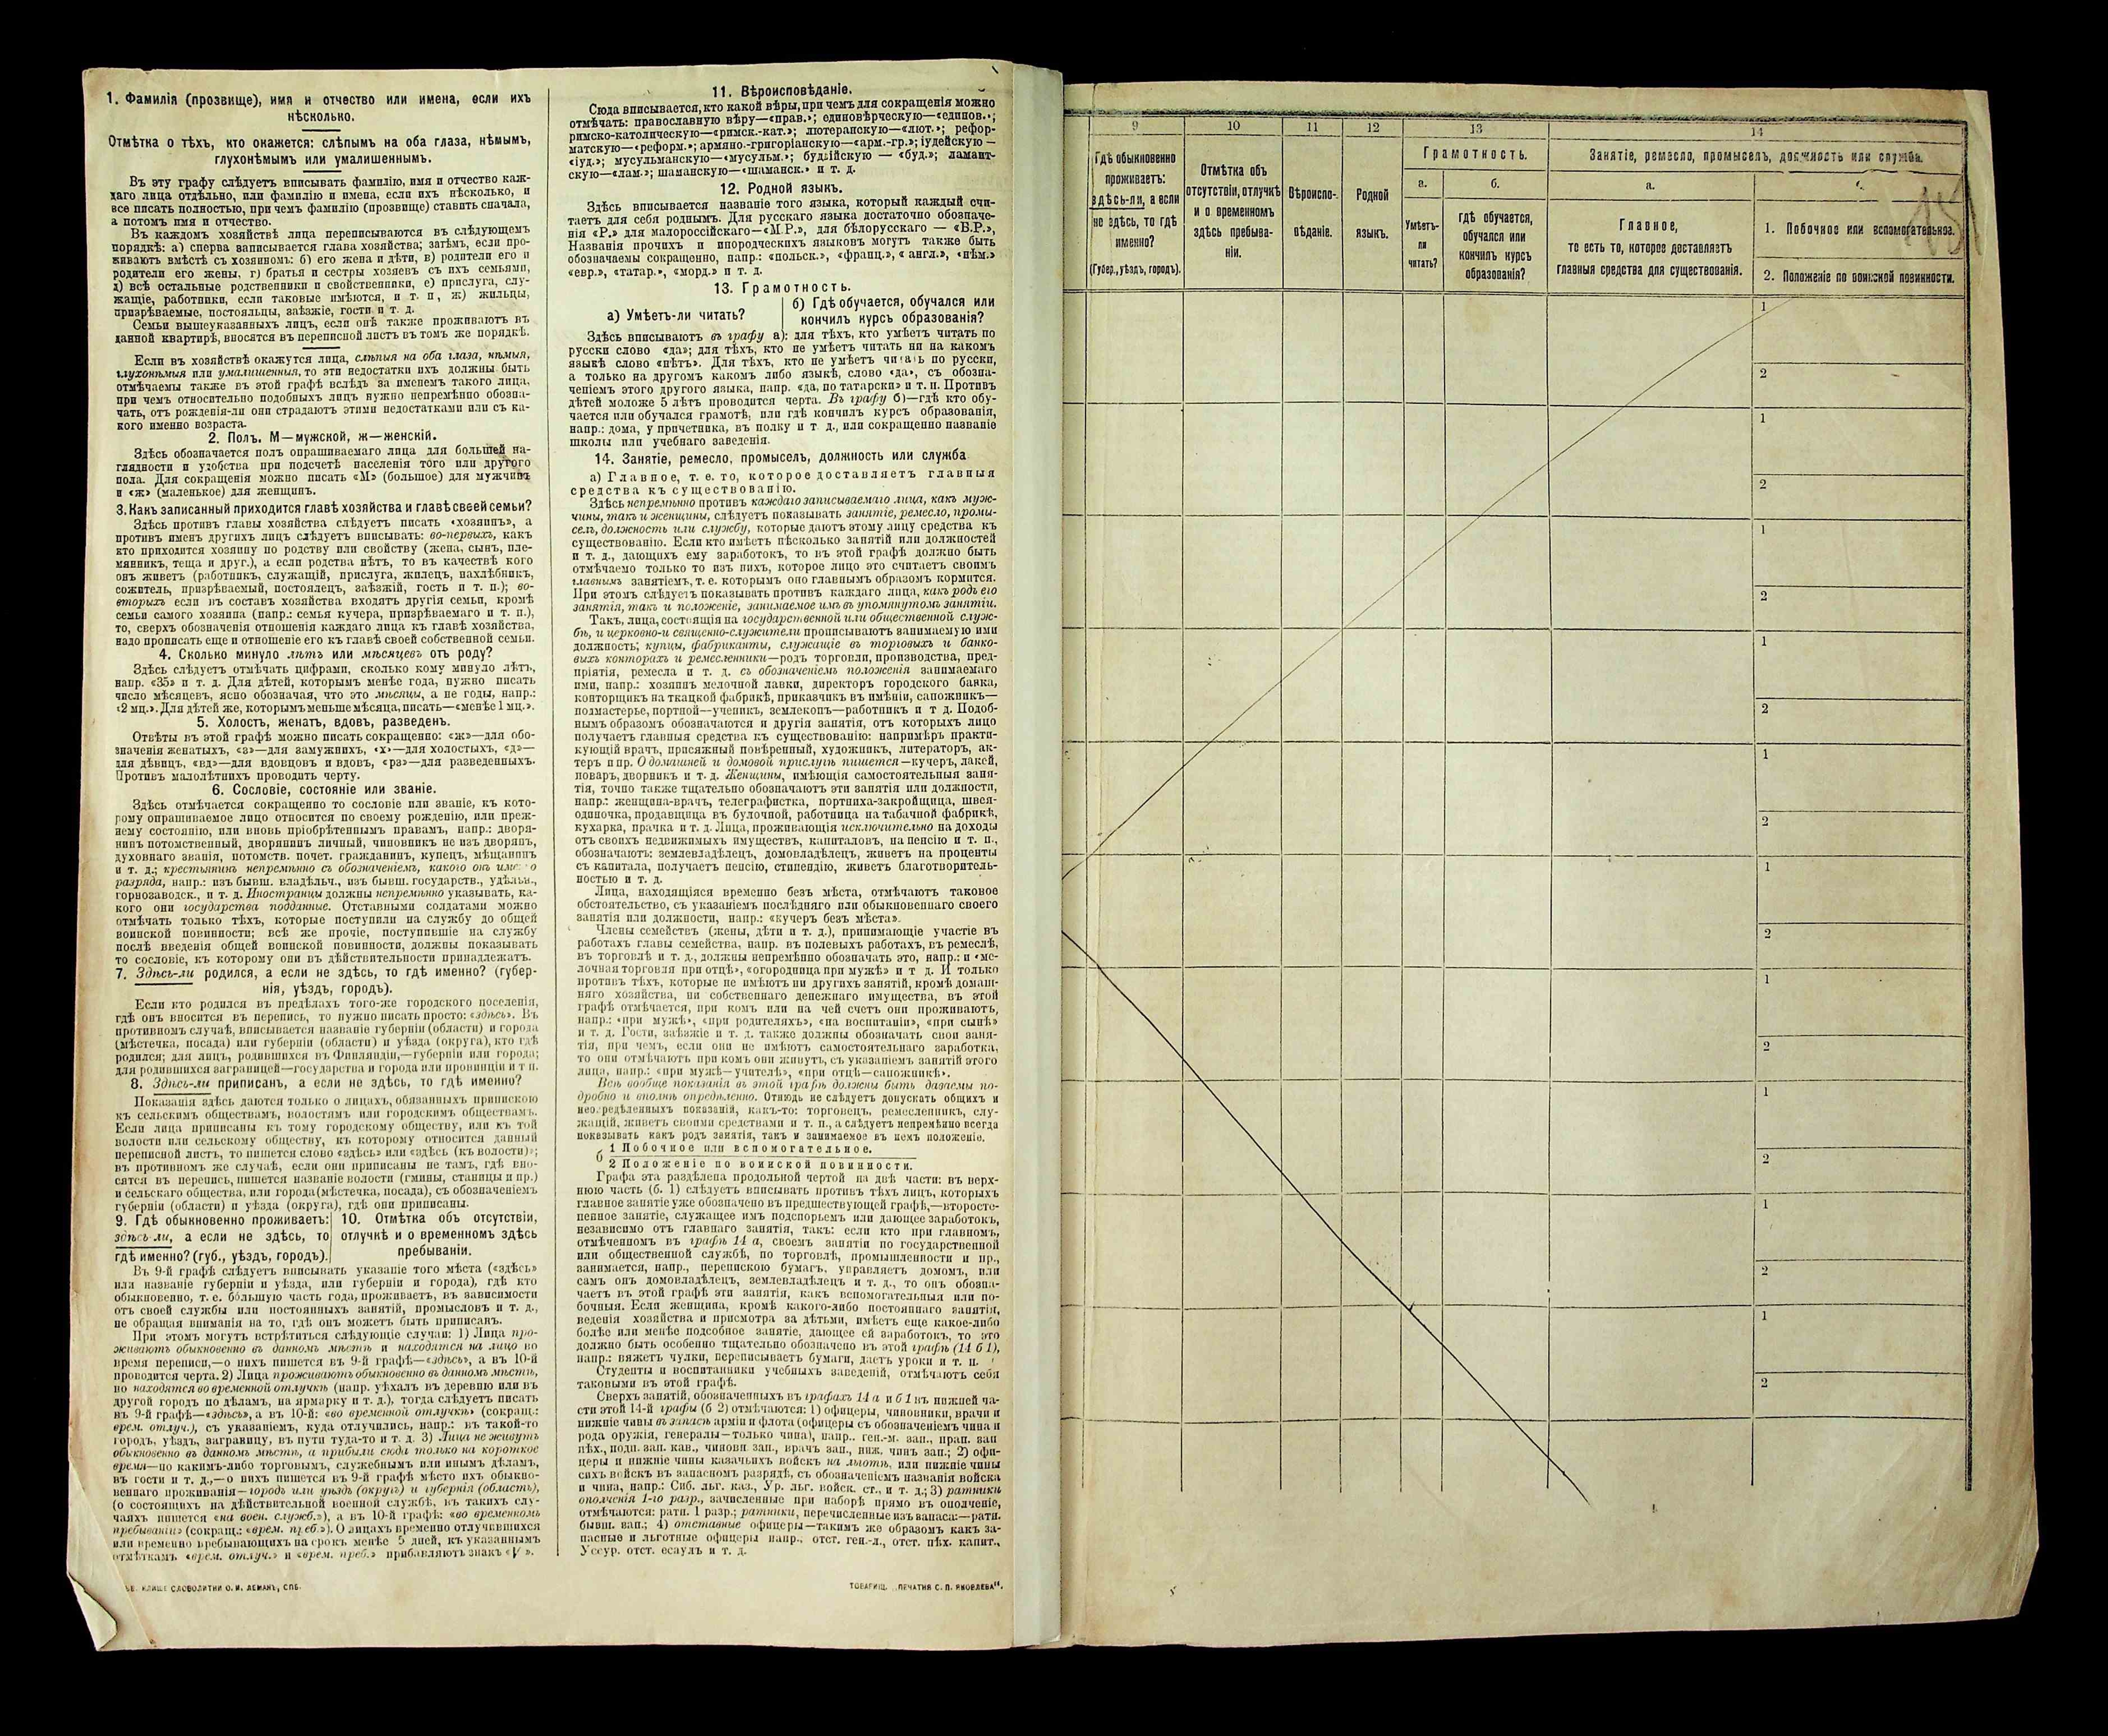 1. Фамилія (прозвище), имя и отчество или имена, если ихъ
нѣсколько.
Отмѣтка о тѣхъ, кто окажется: слѣпымъ на оба глаза, нѣмымъ,
глухонѣмымъ или умалишеннымъ.
Въ эту графу слѣдуетъ вписывать фамилію, имя и отчество каж-
даго лица отдѣльно, или фамилію и имена, если ихъ нѣсколько, и
все писать полностью, при чемъ фамилію (прозвище) ставить сначала,
а потомъ имя и отчество.
Въ каждомъ хозяйствѣ лица переписываются въ слѣдующемъ
порядкѣ: а) сперва записывается глава хозяйства; затѣмъ, если про-
живаютъ вмѣстѣ съ хозяиномъ: б) его жена и дѣти, в) родители его и
родители его жены, г) братья и сестры хозяевъ съ ихъ семьями,
д) всѣ остальные родственники и свойственники, е) прислуга, слу-
жащіе, работники, если таковые имѣются, и т. п, ж) жильцы,
призрѣваемые, постояльцы, заѣзжіе, гости и т. д.
Семьи вышеуказанныхъ лицъ, если онѣ также проживаютъ въ
данной квартирѣ, вносятся въ переписной листъ въ томъ же порядкѣ.
Если въ хозяйствѣ окажутся лица, слѣпыя на оба глаза, нѣмыя,
глухонѣмыя или умалишенныя, то эти недостатки ихъ должны быть
отмѣчаемы также въ этой графѣ вслѣдъ за именемъ такого лица,
при чемъ относительно подобныхъ лицъ нужно непремѣнно обозна-
чать, отъ рожденія-ли они страдаютъ этими недостатками или съ ка-
кого именно возраста.
2. Полъ. М—мужской, ж—женскій.
Здѣсь обозначается полъ опрашиваемаго лица для большей на-
глядности и удобства при подсчетѣ населенія того или другого
пола. Для сокращенія можно писать «М» (большое) для мужчинъ
и «ж» (маленькое) для женщинъ.
3. Какъ записанный приходится главѣ хозяйства и главѣ своей семьи?
Здѣсь противъ главы хозяйства слѣдуетъ писать «хозяинъ», а
противъ именъ другихъ лицъ слѣдуетъ вписывать: во-первыхъ, какъ
кто приходится хозяину по родству или свойству (жена, сынъ, пле-
мянникъ, теща и друг.), а если родства нѣтъ, то въ качествѣ кого
онъ живетъ (работникъ, служащій, прислуга, жилецъ, нахлѣбникъ,
сожитель, призрѣваемый, постоялецъ, заѣзжій, гость и т. п.); во-
вторыхъ если въ составъ хозяйства входятъ другія семьи, кромѣ
семьи самого хозяина (напр.: семья кучера, призрѣваемаго и т. п.),
то, сверхъ обозначенія отношенія каждаго лица къ главѣ хозяйства,
надо прописать еще и отношеніе его къ главѣ своей собственной семьи.
4. Сколько минуло лѣтъ или мѣсяцевъ отъ роду?
Здѣсь слѣдуетъ отмѣчать цифрами, сколько кому минуло лѣтъ,
напр. «35» и т. д. Для дѣтей, которымъ менѣе года, нужно писать
число мѣсяцевъ, ясно обозначая, что это мѣсяцы, а не годы, напр.:
«2 мц.». Для дѣтей же, которымъ меньше мѣсяца, писать—«менѣе 1 мц.».
5. Холостъ, женатъ, вдовъ, разведенъ.
Отвѣты въ этой графѣ можно писать сокращенно: «ж»—для обо-
значенія женатыхъ, «з»—для замужнихъ, «х»—для холостыхъ, «д»—
для дѣвицъ, «вд»—для вдовцовъ и вдовъ, «рз»—для разведенныхъ.
Противъ малолѣтнихъ проводить черту.
6. Сословіе, состояніе или званіе.
Здѣсь отмѣчается сокращенно то сословіе или званіе, къ кото-
рому опрашиваемое лицо относится по своему рожденію, или преж-
нему состоянію, или вновь пріобрѣтеннымъ правамъ, напр.: дворя-
нинъ потомственный, дворянинъ личный, чиновникъ не изъ дворянъ,
духовнаго званія, потомств. почет. гражданинъ, купецъ, мѣщанинъ
и т. д.; крестьянинъ непремѣнно съ обозначеніемъ, какого онъ именно
разряда, напр.: изъ бывш. владѣльч., изъ бывш. государств., удѣльн.,
горнозаводск., и т. д. Иностранцы должны непремѣнно указывать, ка-
кого они государства подданные. Отставными солдатами можно
отмѣчать только тѣхъ, которые поступили на службу до общей
воинской повинности; всѣ же прочіе, поступившіе на службу
послѣ введенія общей воинской повинности, должны показывать
то сословіе, къ которому они въ дѣйствительности принадлежатъ.
7. Здѣсь-ли родился, а если не здѣсь, то гдѣ именно? (губер-
нія, уѣздъ, городъ).
Если кто родился въ предѣлахъ того-же городского поселенія,
гдѣ онъ вносится въ перепись, то нужно писать просто: «здѣсь». Въ
противномъ случаѣ, вписывается названіе губерніи (области) и города
(мѣстечка, посада) или губерніи (области) и уѣзда (округа), кто гдѣ
родился; для лицъ, родившихся въ Финляндіи,—губерніи или города;
для родившихся заграницей—государства и города или провинціи и т п.
8. Здѣсь-ли приписанъ, а если не здѣсь, то гдѣ именно?
Показанія здѣсь даются только о лицахъ, обязанныхъ припискою
къ сельскимъ обществамъ, волостямъ или городскимъ обществамъ.
Если лица приписаны къ тому городскому обществу, или къ той
волости или сельскому обществу, къ которому относится данный
переписной листъ, то пишется слово «здѣсь» или «здѣсь (къ волости)»;
въ противномъ же случаѣ, если они приписаны не тамъ, гдѣ вно-
сятся въ перепись, пишется названіе волости (гмины, станицы и пр.)
и сельскаго общества, или города (мѣстечка, посада), съ обозначеніемъ
губерніи (области) и уѣзда (округа), гдѣ они приписаны.
9. Гдѣ обыкновенно проживаетъ:
здѣсь-ли, а если не здѣсь, то
гдѣ именно? (губ., уѣздъ, городъ).
10. Отмѣтка объ отсутствіи,
отлучкѣ и о временномъ здѣсь
пребываніи.
Въ 9-й графѣ слѣдуетъ вписывать указаніе того мѣста («здѣсь»
или названіе губерніи и уѣзда, или губерніи и города), гдѣ кто
обыкновенно, т. е. бо́льшую часть года, проживаетъ, въ зависимости
отъ своей службы или постоянныхъ занятій, промысловъ и т. д.,
не обращая вниманія на то, гдѣ онъ можетъ быть приписанъ.
При этомъ могутъ встрѣтиться слѣдующіе случаи: 1) Лица про-
живаютъ обыкновенно въ данномъ мѣстѣ и находятся на лицо во
время переписи,—о нихъ пишется въ 9-й графѣ—«здѣсь», а въ 10-й
проводится черта. 2) Лица проживаютъ обыкновенно въ данномъ мѣстѣ,
но находятся во временной отлучкѣ (напр. уѣхалъ въ деревню или въ
другой городъ по дѣламъ, на ярмарку и т. д.), тогда слѣдуетъ писать
въ 9-й графѣ—«здѣсь», а въ 10-й: «во временной отлучкѣ» (сокращ.:
врем. отлуч.), съ указаніемъ, куда отлучились, напр.: въ такой-то
городъ, уѣздъ, заграницу, въ пути туда-то и т. д. 3) Лица не живутъ
обыкновенно въ данномъ мѣстѣ, а прибыли сюда только на короткое
время—по какимъ-либо торговымъ, служебнымъ или инымъ дѣламъ,
въ гости и т. д.,—о нихъ пишется въ 9-й графѣ мѣсто ихъ обыкно-
веннаго проживанія—городъ или уѣздъ (округъ) и губернія (область),
(о состоящихъ на дѣйствительной военной службѣ, въ такихъ слу-
чаяхъ пишется «на воен. служб.»), а въ 10-й графѣ: «во временномъ
пребываніи» (сокращ.: «врем. преб.»). О лицахъ временно отлучившихся
или временно пребывающихъ на срокъ менѣе 5 дней, къ указаннымъ
отмѣткамъ «врем. отлуч.» и «врем. преб.» прибавляютъ знакъ «V».
КЛИШЕ СЛОВОЛИТНИ О. И. ЛЕМАНЪ, СПБ.
11. Вѣроисповѣданіе.
Сюда вписывается, кто какой вѣры, при чемъ для сокращенія можно
отмѣчать: православную вѣру—«прав.»; единовѣрческую—«единов.»;
римско-католическую—«римск.-кат.»; лютеранскую—«лют.»; рефор-
матскую—«реформ.»; армяно.-григоріанскую—«арм.-гр.»; іудейскую—
«іуд.»; мусульманскую—«мусульм.»; буддійскую — «буд.»; ламаит-
скую—«лам.»; шаманскую—«шаманск.» и т. д.
12. Родной языкъ.
Здѣсь вписывается названіе того языка, который каждый счи-
таетъ для себя роднымъ. Для русскаго языка достаточно обозначе-
нія «Р.» для малороссійскаго—«М.Р.», для бѣлорусскаго — «Б.Р.»,
Названія прочихъ и инородческихъ языковъ могутъ также быть
обозначаемы сокращенно, напр.: «польск.», «франц.», « англ.», «нѣм.»
«евр.», «татар.», «морд.» и т. д.
13. Грамотность.
а) Умѣетъ-ли читать?
б) Гдѣ обучается, обучался или
кончилъ курсъ образованія?
Здѣсь вписываютъ въ графу а): для тѣхъ, кто умѣетъ читать по
русски слово «да»; для тѣхъ, кто не умѣетъ читать ни на какомъ
языкѣ слово «нѣтъ». Для тѣхъ, кто не умѣетъ читать по русски,
а только на другомъ какомъ либо языкѣ, слово «да», съ обозна-
ченіемъ этого другого языка, напр. «да, по татарски» и т. п. Противъ
дѣтей моложе 5 лѣтъ проводится черта. Въ графу б)—гдѣ кто обу-
чается или обучался грамотѣ, или гдѣ кончилъ курсъ образованія,
напр.: дома, у причетника, въ полку и т. д., или сокращенно названіе
школы или учебнаго заведенія.
14. Занятіе, ремесло, промыселъ, должность или служба
а) Главное, т. е. то, которое доставляетъ главныя
средства къ существованію.
Здѣсь непремѣнно противъ каждаго записываемаго лица, какъ муж-
чины, такъ и женщины, слѣдуетъ показывать занятіе, ремесло, промы-
селъ, должность или службу, которые даютъ этому лицу средства къ
существованію. Если кто имѣетъ нѣсколько занятій или должностей
и т. д., дающихъ ему заработокъ, то въ этой графѣ должно быть
отмѣчаемо только то изъ нихъ, которое лицо это считаетъ своимъ
главнымъ занятіемъ, т. е. которымъ оно главнымъ образомъ кормится.
При этомъ слѣдуетъ показывать противъ каждаго лица, какъ родъ его
занятія, такъ и положеніе, занимаемое имъ въ упомянутомъ занятіи.
Такъ, лица, состоящія на государственной или общественной служ-
бѣ, и церковно-и священно-служители прописываютъ занимаемую ими
должность; купцы, фабриканты, служащіе въ торговыхъ и банко-
выхъ конторахъ и ремесленники—родъ торговли, производства, пред-
пріятія, ремесла и т. д. съ обозначеніемъ положенія занимаемаго
ими, напр.: хозяинъ мелочной лавки, директоръ городского банка,
конторщикъ на ткацкой фабрикѣ, приказчикъ въ имѣніи, сапожникъ—
подмастерье, портной—ученикъ, землекопъ—работникъ и т д. Подоб-
нымъ образомъ обозначаются и другія занятія, отъ которыхъ лицо
получаетъ главныя средства къ существованію: напримѣръ практи-
кующій врачъ, присяжный повѣренный, художникъ, литераторъ, ак-
теръ и пр. О домашней и домовой прислугѣ пишется—кучеръ, лакей,
поваръ, дворникъ и т. д. Женщины, имѣющія самостоятельныя заня-
тія, точно также тщательно обозначаютъ эти занятія или должности,
напр.: женщина-врачъ, телеграфистка, портниха-закройщица, швея-
одиночка, продавщица въ булочной, работница на табачной фабрикѣ,
кухарка, прачка и т. д. Лица, проживающія исключительно на доходы
отъ своихъ недвижимыхъ имуществъ, капиталовъ, на пенсію и т. п.,
обозначаютъ: землевладѣлецъ, домовладѣлецъ, живетъ на проценты
съ капитала, получаетъ пенсію, стипендію, живетъ благотворитель-
ностью и т. д.
Лица, находящіяся временно безъ мѣста, отмѣчаютъ таковое
обстоятельство, съ указаніемъ послѣдняго или обыкновеннаго своего
занятія или должности, напр.: «кучеръ безъ мѣста».
Члены семействъ (жены, дѣти и т. д.), принимающіе участіе въ
работахъ главы семейства, напр. въ полевыхъ работахъ, въ ремеслѣ,
въ торговлѣ и т. д., должны непремѣнно обозначать это, напр.: и «ме-
лочная торговля при отцѣ», «огородница при мужѣ» и т д. И только
противъ тѣхъ, которые не имѣютъ ни другихъ занятій, кромѣ домаш-
няго хозяйства, ни собственнаго денежнаго имущества, въ этой
графѣ отмѣчается, при комъ или на чей счетъ они проживаютъ,
напр.: «при мужѣ», «при родителяхъ», «на воспитаніи», «при сынѣ»
и т. д. Гости, заѣзжіе и т. д. также должны обозначать свои заня-
тія, при чемъ, если они не имѣютъ самостоятельнаго заработка,
то они отмѣчаютъ при комъ они живутъ, съ указаніемъ занятій этого
лица, напр.: «при мужѣ—учителѣ», «при отцѣ—сапожникѣ».
Всѣ вообще показанія въ этой графѣ должны быть даваемы по-
дробно и вполнѣ опредѣленно. Отнюдь не слѣдуетъ допускать общихъ и
неопредѣленныхъ показаній, какъ-то: торговецъ, ремесленникъ, слу-
жащій, живетъ своими средствами и т. п., а слѣдуетъ непремѣнно всегда
показывать какъ родъ занятія, такъ и занимаемое въ немъ положеніе.
б 1 Побочное или вспомогательное.
2 Положеніе по воинской повинности.
Графа эта раздѣлена продольной чертой на двѣ части: въ верх-
нюю часть (б. 1) слѣдуетъ вписывать противъ тѣхъ лицъ, которыхъ
главное занятіе уже обозначено въ предшествующей графѣ,—второсте-
пенное занятіе, служащее имъ подспорьемъ или дающее заработокъ,
независимо отъ главнаго занятія, такъ: если кто при главномъ,
отмѣченномъ въ графѣ 14 а, своемъ занятіи по государственной
или общественной службѣ, по торговлѣ, промышленности и пр.,
занимается, напр., перепискою бумагъ, управляетъ домомъ, или
самъ онъ домовладѣлецъ, землевладѣлецъ и т. д., то онъ обозна-
чаетъ въ этой графѣ эти занятія, какъ вспомогательныя или по-
бочныя. Если женщина, кромѣ какого-либо постояннаго занятія,
веденія хозяйства и присмотра за дѣтьми, имѣетъ еще какое-либо
болѣе или менѣе подсобное занятіе, дающее ей заработокъ, то это
должно быть особенно тщательно обозначено въ этой графѣ (14 б 1),
напр.: вяжетъ чулки, переписываетъ бумаги, даетъ уроки и т. п.
Студенты и воспитанники учебныхъ заведеній, отмѣчаютъ себя
таковыми въ этой графѣ.
Сверхъ занятій, обозначенныхъ въ графахъ 14 а и б 1 въ нижней ча-
сти этой 14-й графы (б 2) отмѣчаются: 1) офицеры, чиновники, врачи и
нижніе чины въ запасѣ арміи и флота (офицеры съ обозначеніемъ чина и
рода оружія, генералы—только чина), напр.. ген.-м. зап., прап. зап
пѣх., подп. зап. кав., чиновн зап., врачъ зап., ниж. чинъ зап.; 2) офи-
церы и нижніе чины казачьихъ войскъ на льготѣ, или нижніе чины
сихъ войскъ въ запасномъ разрядѣ, съ обозначеніемъ названія войска
и чина, напр.: Сиб. льг. каз., Ур. льг. войск. ст., и т. д.; 3) ратники
ополченія 1-го разр., зачисленные при наборѣ прямо въ ополченіе,
отмѣчаются: ратн. 1 разр.; ратники, перечисленные изъ запаса:—ратн.
бывш. зап.; 4) отставные офицеры—такимъ же образомъ какъ за-
пасные и льготные офицеры напр., отст. ген.-л., отст. пѣх. капит.,
Уссур. отст. есаулъ и т. д.
ТОВАРИЩ. „ПЕЧАТНЯ С. П. ЯКОВЛЕВА“.
9 10 11 12 13 14
Гдѣ обыкновенно
проживаетъ:
здѣсь-ли, а если
не здѣсь, то гдѣ
именно?
(Губер., уѣздъ, городъ).
Отмѣтка объ
отсутствіи, отлучкѣ
и о временномъ
здѣсь пребыва-
ніи.
Вѣроиспо-
вѣданіе.
Родной
языкъ.
Грамотность.
а.
Умѣетъ-
ли
читать?
б.
гдѣ обучается,
обучался или
кончилъ курсъ
образованія?
Занятіе, ремесло, промыселъ, должность или служба.
а.
Главное,
то есть то, которое доставляетъ
главныя средства для существованія.
1. Побочное или вспомогательное.
2. Положеніе по воинской повинности.
1
2
1
2
1
2
1
2
1
2
1
2
1
2
1
2
1
2
1
2